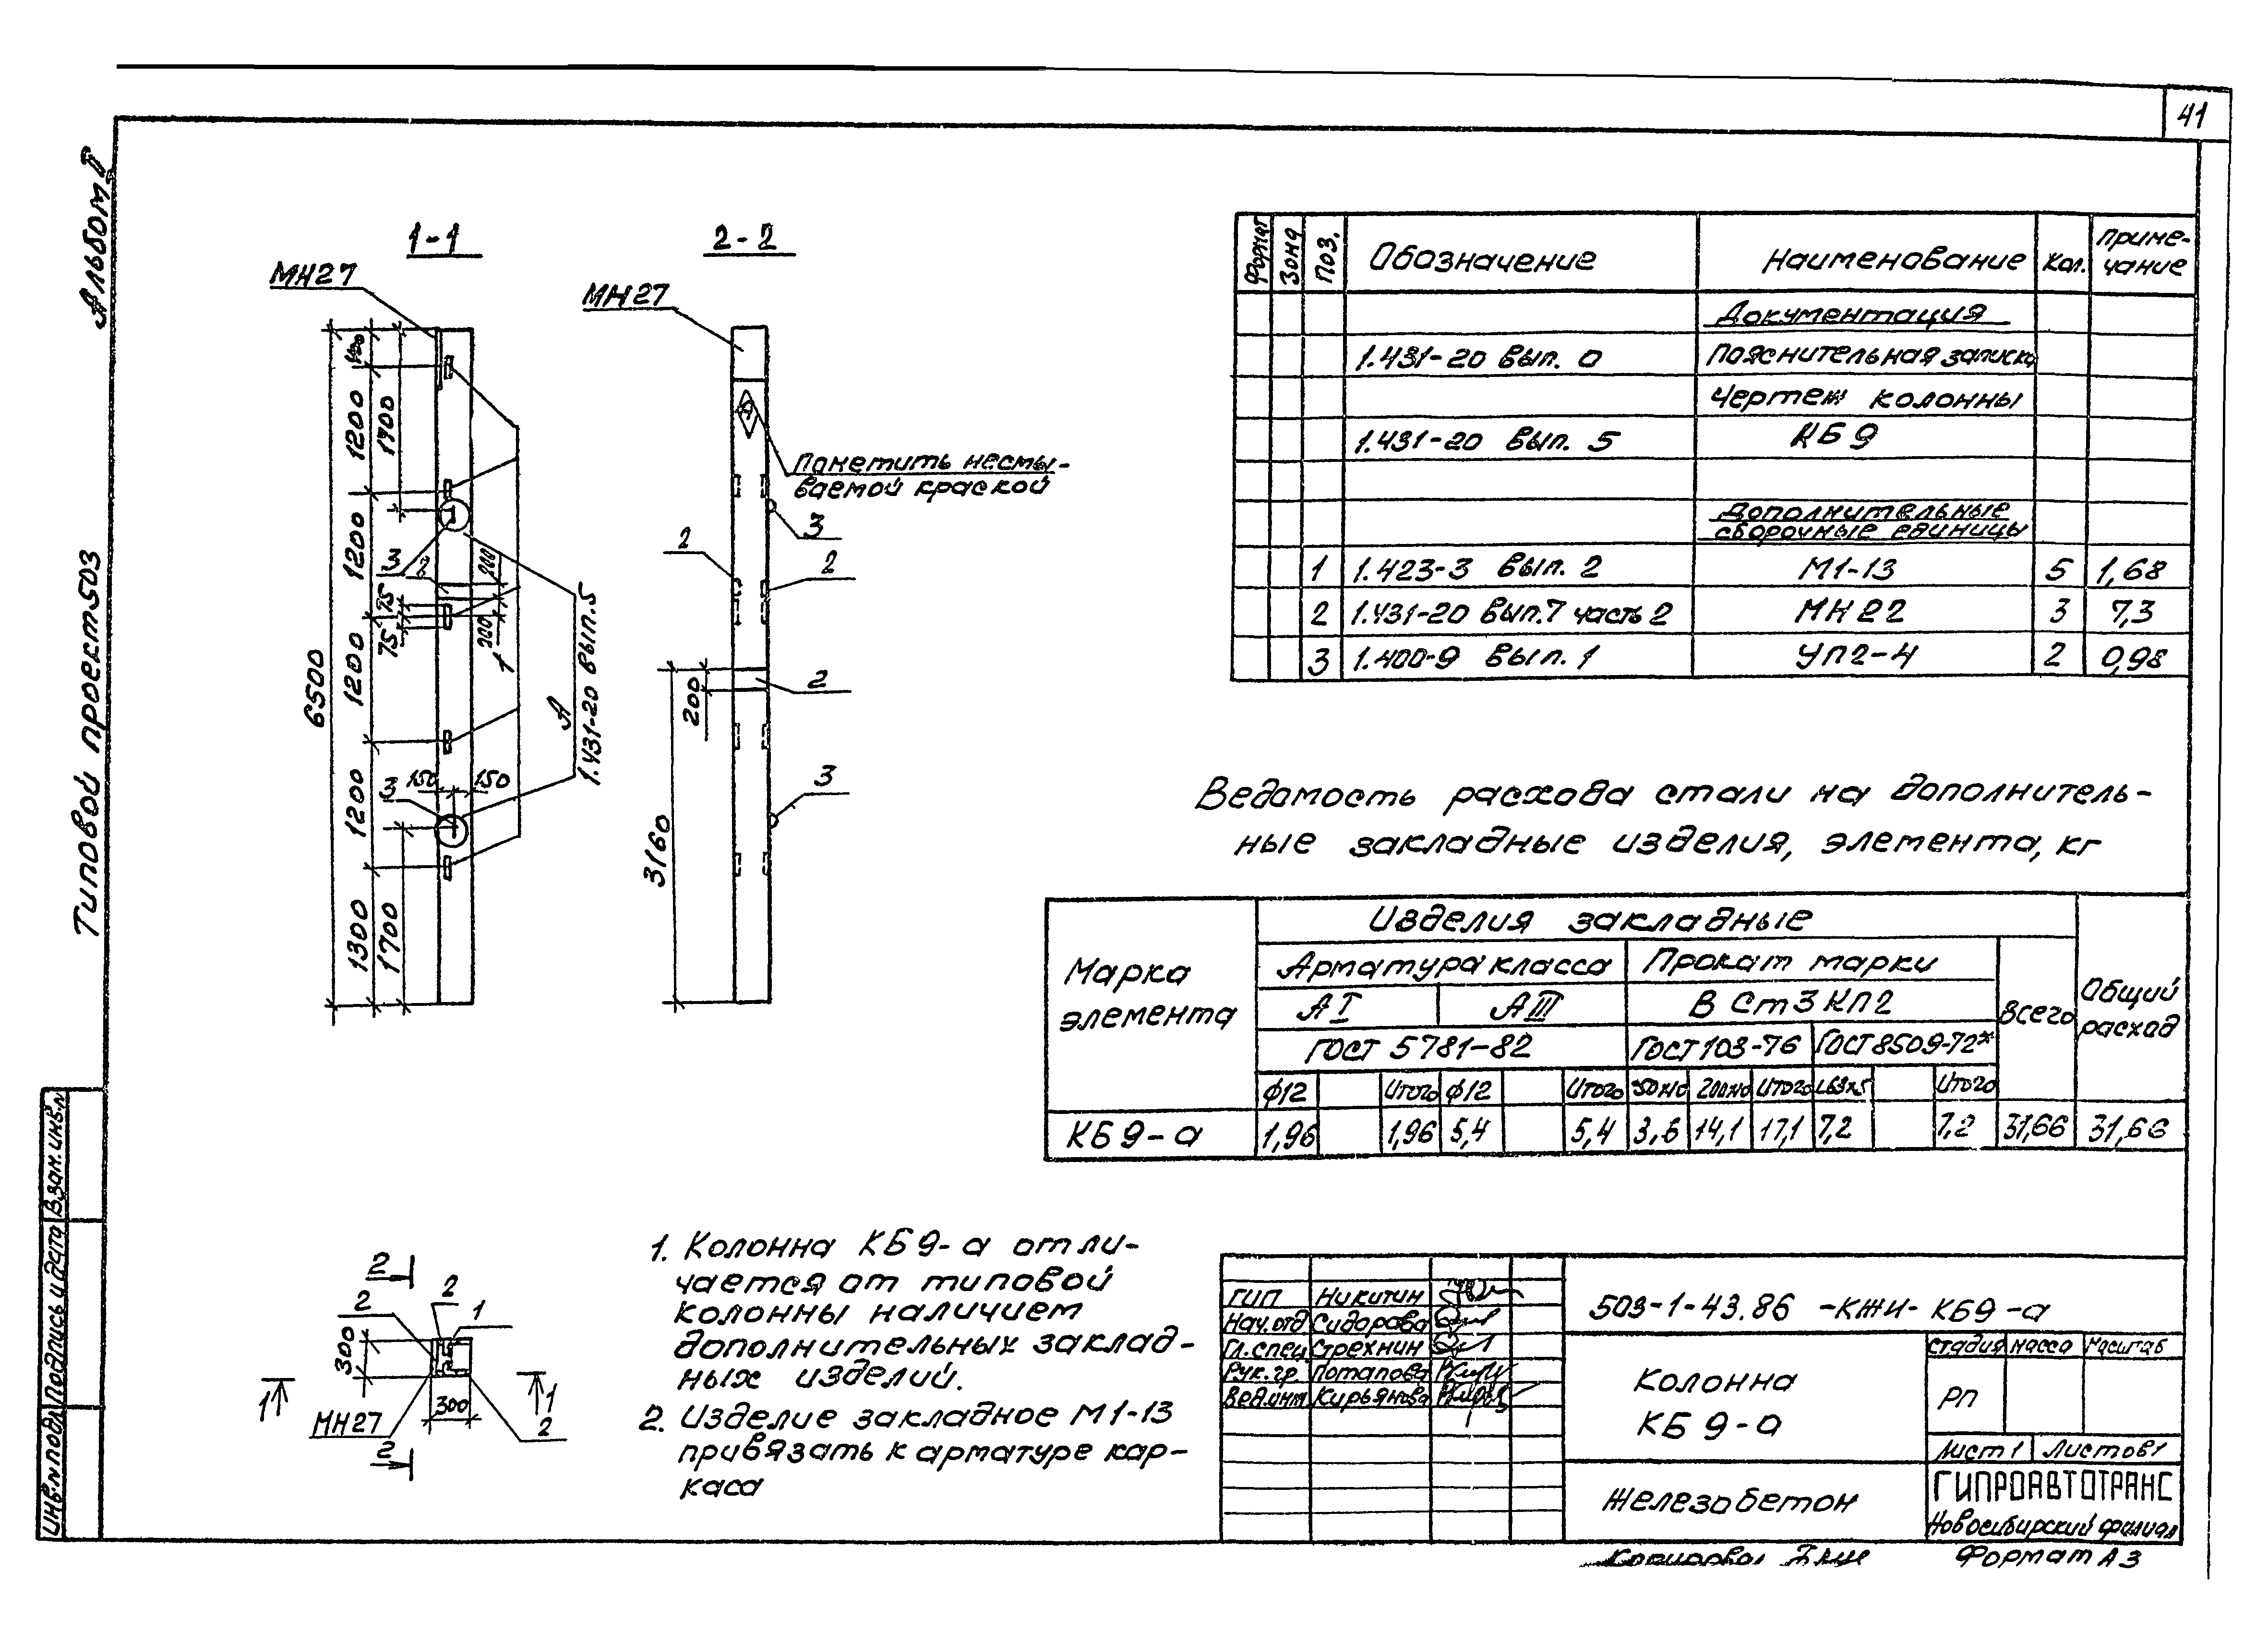 41
Альбом II
Типовой проект 503
1-1
2-2
МН27
МН27
400
1200
1700
1200
3
2
200
75
75
200
1
1200
6500
А
1.431-20 вып.5
150
150
3
1200
1300
1700
А
Пометить несмы-
ваемой краской
3
2
2
2
200
3
3160
Формат
Зона
Поз.
Обозначение
Наименование
Кол.
Приме-
чание
Документация
1.431-20 вып. 0
Пояснительная записка
Чертеж колонны
1.431-20 вып. 5
КБ 9
Дополнительные
сборочные единицы
1 1.423-3 вып. 2 М1-13 5 1,68
2 1.431-20 вып.7 часть 2 МН22 3 7,3
3 1.400-9 вып. 1 УП2-4 2 0,98
Ведомость расхода стали на дополнитель-
ные закладные изделия, элемента, кг
Марка
элемента
Изделия закладные
Арматура класса
Прокат марки
АI
АIII
В Ст3 КП2
Всего
Общий
расход
ГОСТ 5781-82
ГОСТ 103-76
ГОСТ 8509-72*
ф12
Итого
ф12
Итого
Итого
L63х5
Итого
КБ 9-а 1,96 1,96 5,4 5,4 3,6 14,1 17,1 7,2 7,2 31,66 31,66
2
2
2
1
300
1
1
МН27
300
2
2
1. Колонна КБ 9-а отли-
чается от типовой
колонны наличием
дополнительных заклад-
ных изделий.
2. Изделие закладное М1-13
привязать к арматуре кар-
каса
Взам. инв.№
Подпись и дата
Инв.№ подл.
ГИП Никитин
Нач.отд Сидорова
Гл.спец. Стрехнин
Рук.гр. Потапова
Вед.инж Кирьянова
503-1-43.86 -КЖИ- КБ9-а
Колонна
КБ 9-а
Стадия
Масса
Масштаб
РП
Лист 1
Листов 1
Железобетон
ГИПРОАВТОТРАНС
Новосибирский филиал
Копировал
Формат А3